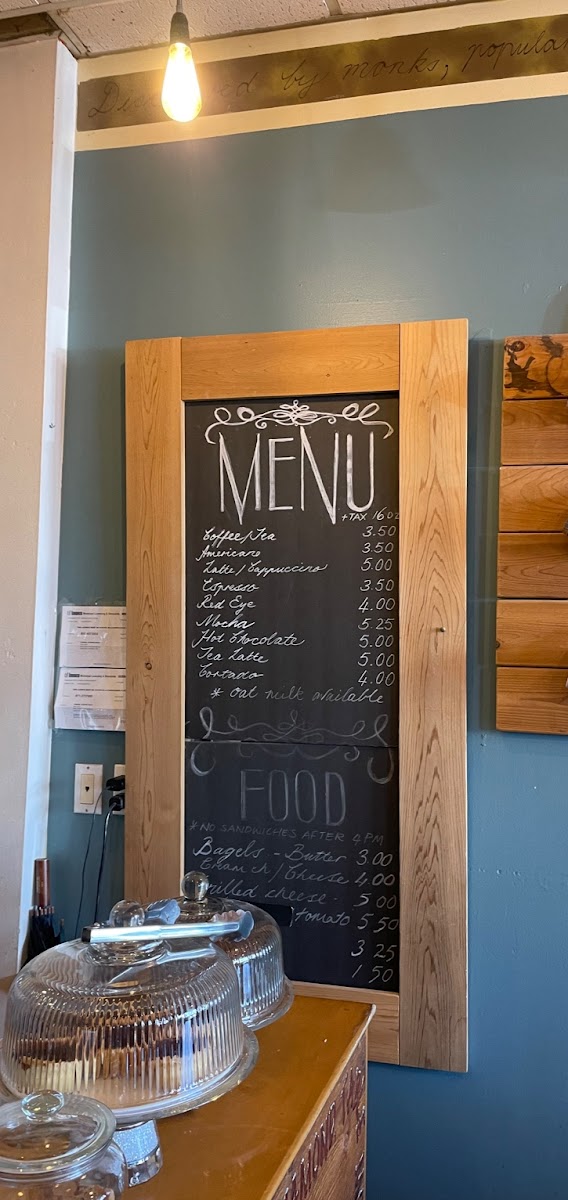 by monks, popular
MENU
+TAX 16oz
Coffee/Tea 3.50
Americano 3.50
Latte/Cappuccino 5.00
Espresso 3.50
Red Eye 4.00
Mocha 5.25
Hot Chocolate 5.00
Tea Latte 5.00
Cortado 4.00
* oat milk available
FOOD
*NO SANDWICHES AFTER 4PM
Bagels - Butter 3.00
Cream ch/Cheese 4.00
Grilled cheese - 5 00
tomato 5 50
3 25
1 50